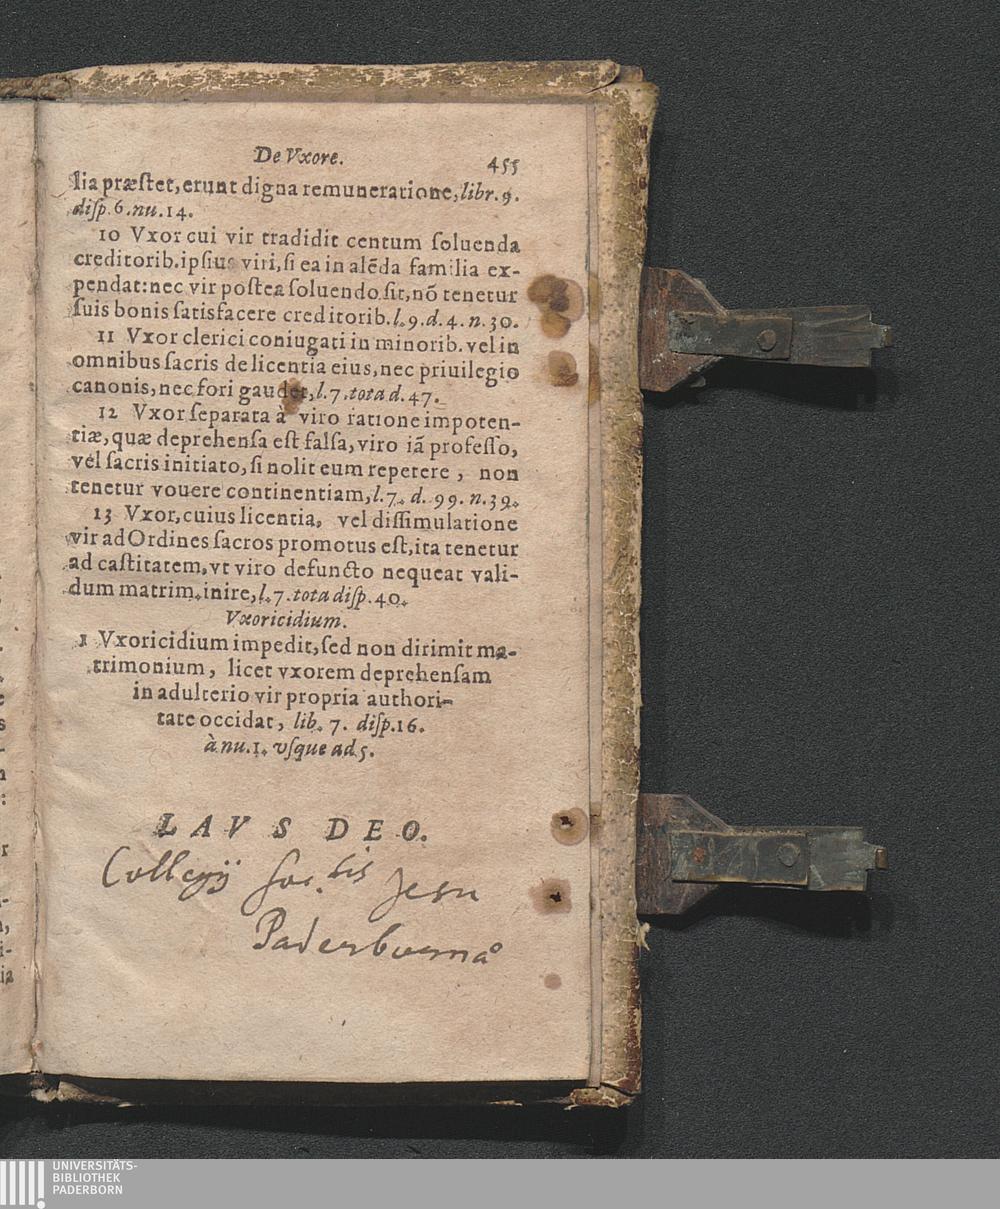 De Vxore. 455
lia præſtet, erunt digna remuneratione, libr. 9.
diſp. 6. nu. 14.
10 Vxor cui vir tradidit centum ſoluenda
creditorib. ipſius viri, ſi ea in alẽda familia ex-
pendat: nec vir poſtea ſoluendo ſit, nõ tenetur
ſuis bonis ſatisfacere creditorib. l. 9. d. 4. n. 30.
11 Vxor clerici coniugati in minorib. vel in
omnibus ſacris de licentia eius, nec priuilegio
canonis, nec fori gaudet, l. 7. tota d. 47.
12 Vxor ſeparata à viro ratione impoten-
tiæ, quæ deprehenſa eſt falſa, viro iã profeſſo,
vel ſacris initiato, ſi nolit eum repetere, non
tenetur vouere continentiam, l. 7. d. 99. n. 39.
13 Vxor, cuius licentia, vel diſſimulatione
vir ad Ordines ſacros promotus eſt, ita tenetur
ad caſtitatem, vt viro defuncto nequeat vali-
dum matrim. inire, l. 7. tota diſp. 40.
Vxoricidium.
1 Vxoricidium impedit, ſed non dirimit ma-
trimonium, licet vxorem deprehenſam
in adulterio vir propria authori-
tate occidat, lib. 7. diſp. 16.
à nu. 1. vſque ad 5.
LAVS DEO.
Collegij Soc.tis Jesu
Paderbornã
UNIVERSITÄTS-
BIBLIOTHEK
PADERBORN